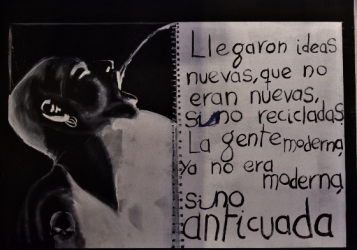 Llegaron ideas
nuevas, que no
eran nuevas,
sino recicladas
La gente moderna,
ya no era
moderna,
sino
anticuada